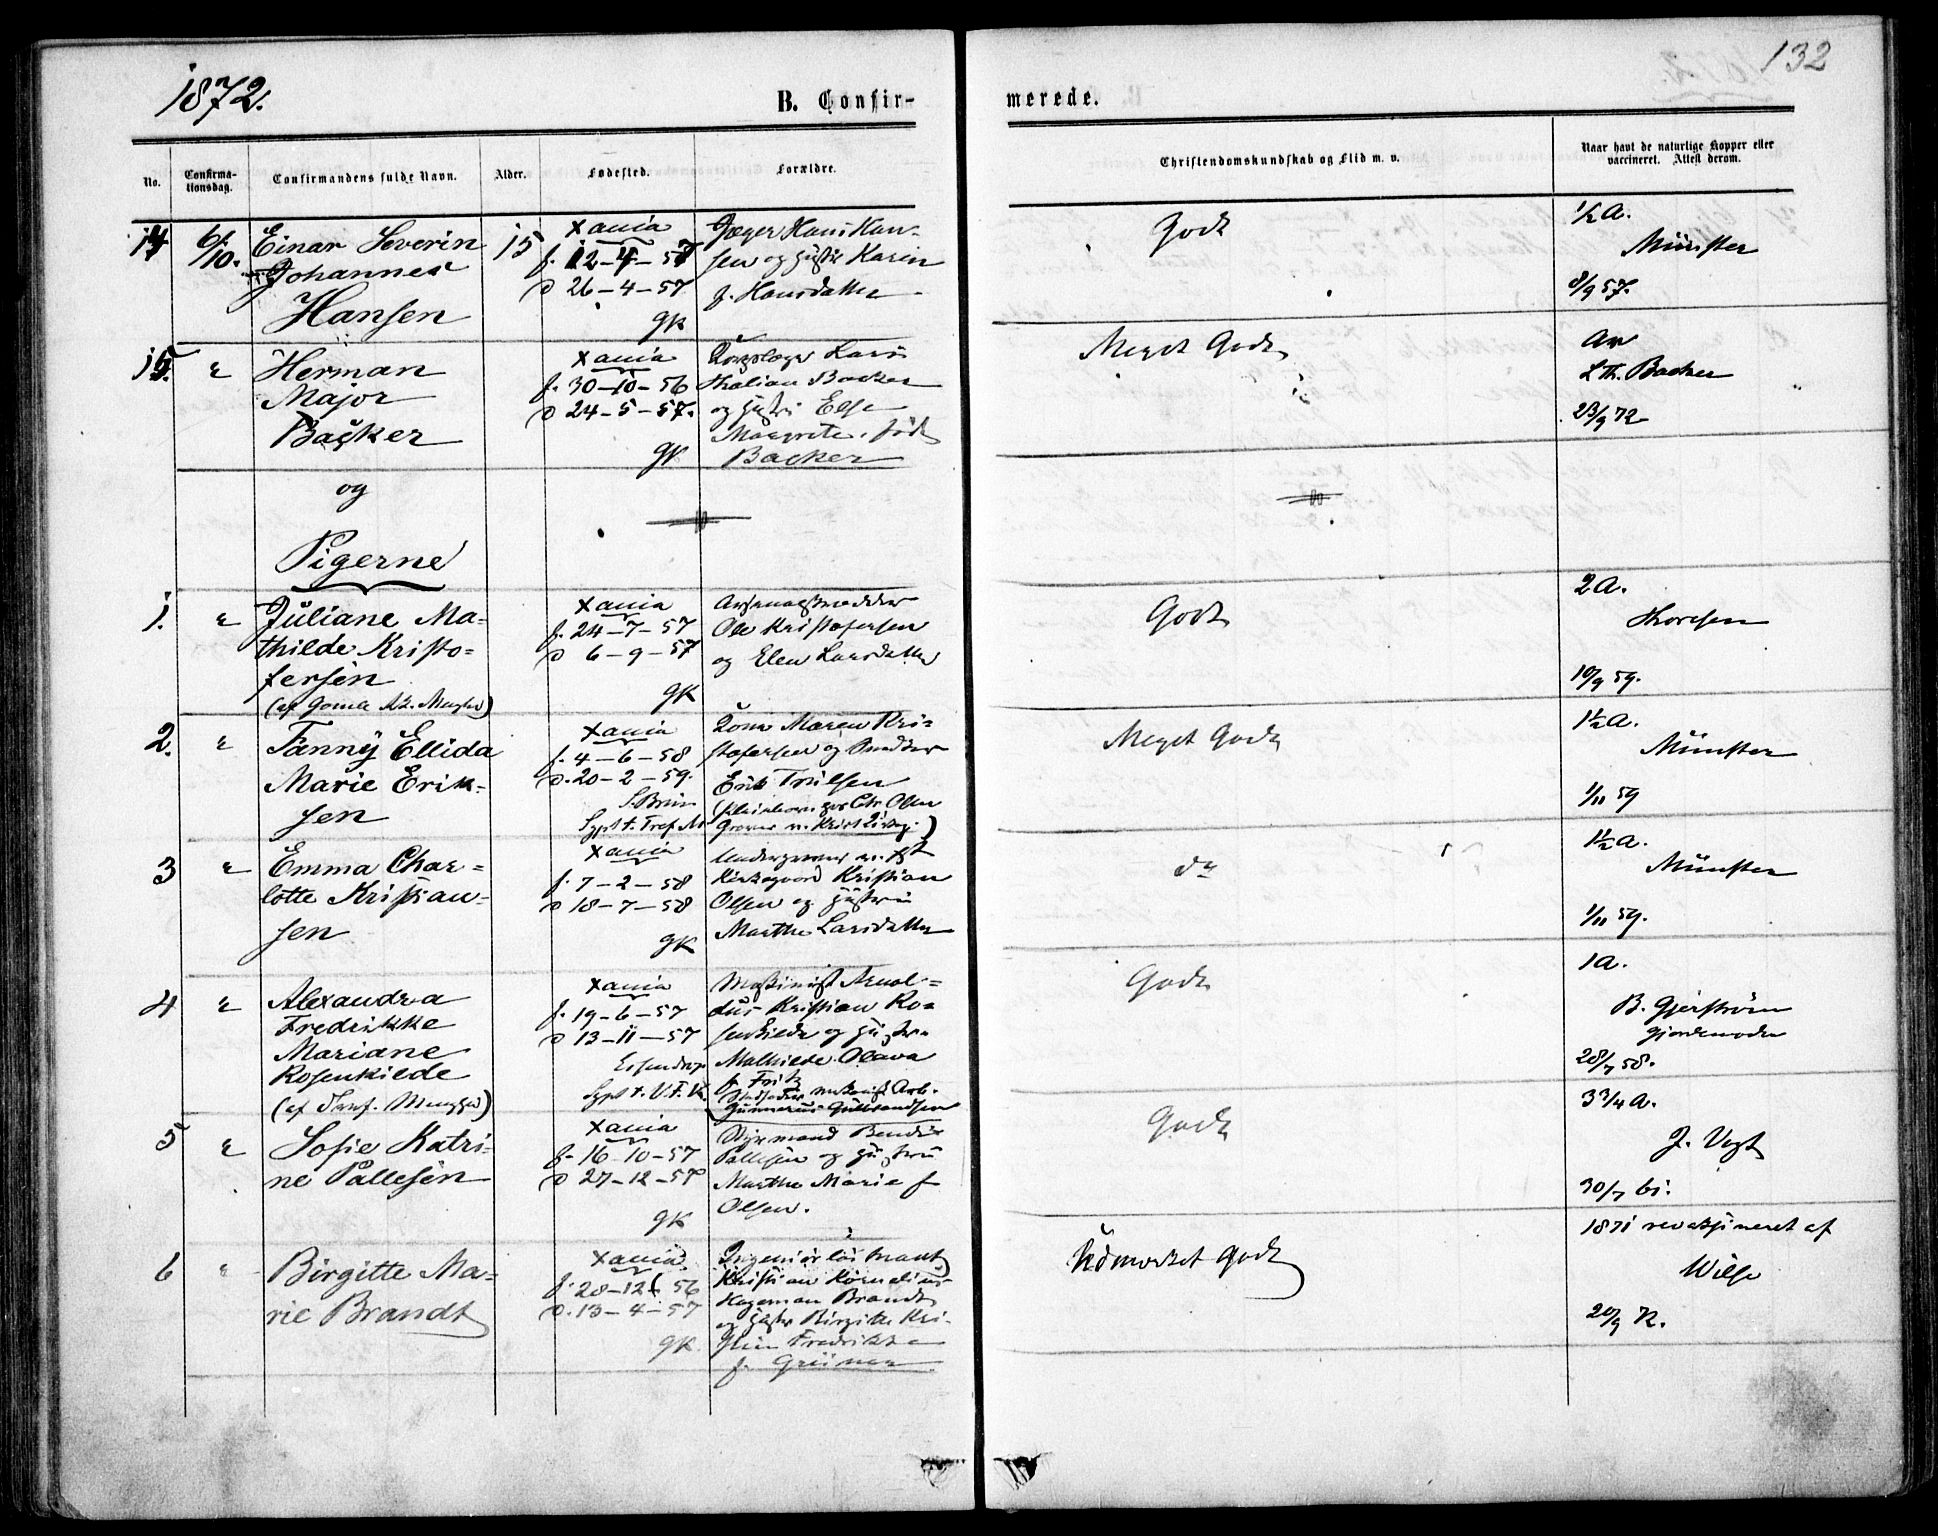 1872.
132
B. Confir-
merede.
No.
Confirma-
tionsdag.
Confirmandens fulde Navn.
Alder.
Fødested.
Forældre.
Christendomskundskab og Flid m. v.
Naar havt de naturlige Kopper eller
vaccineret. Attest derom.
14
6/10.
Einar Severin
Johannes
Hansen
15
Xania
f. 12-4-57
D 26-4-57
GK
Jæger Hans Han-
sen og Hustr Karin
f. Hansdatter
Godt
1/2 A.
Münster
8/9 57.
15.
"
Herman
Major
Backer
Xania
f. 30-10-56
D 24-5-57.
GK
Korpslæge Lars
Thalian Backer
og Hustru Else
Margrete, født
Backer
Meget Godt
Av
L. Th. Backer
23/9 72
og
Pigerne
1.
"
Juliane Ma-
thilde Kristo-
fersen
(af Gamle Ak. Menighed)
Xania
f. 24-7-57
D 6-9-57
GK
Arsenalsmedder
Ole Kristofersen
og Elen Larsdatter
Godt
2 A.
Thoresen
10/9 59.
2.
"
Fanny Ellida
Marie Erik-
sen
Xania
f. 4-6-58
D. 20-2-59.
S. Brun
Sypst t. Tref. M.
Kone Maren Kri-
stofersen og Smedsv
Erik Trulsen
(Pleiebarn hos Chr. Olsen
Graver v. Krist Kirkeg.)
Meget Godt
1 1/2 A.
Münster
1/11 59
3
"
Emma Char-
lotte Kristian-
sen
Xania
f. 7-2-58
D 18-7-58
GK
Undergraver v.
Kirkegaard Kristian
Olsen og Hustru
Marthe Larsdatter
do
1 1/2 A.
Münster
1/11 59.
4
"
Alexandra
Fredrikke
Mariane
Rosenkilde
(af Menighed)
Xania
f. 19-6-57
D 13-11-57
Essendrop
Sypst t. V. F. K.
Maskinist Arnol-
dus Kristian Ro-
senkilde og Hustru
Mathilde Olava
f. Fritz
Stedfader maskinist Arb.
Gunnerius Gulbrandsen
Godt
1 A.
B. Gjerstrøm
Gjordemoder
28/7 58.
5
"
Sofie Katri-
ne Pallesen
Xania
f. 16-10-57
D 27-12-57
GK
Styrmand Bendix
Pallesen og Hustru
Marthe Marie f
Olsen.
Godt
3 3/4 A.
J. Vogt
30/7 61.
6
"
Birgitte Ma-
rie Brandt
Xania.
f. 28-12-56
D. 13-4-57
GK.
Ingeniørløitnant
Kristian Kornelius
Hageman Brandt
og Hustr Birgitte Kri-
stine Fredrikke
f. Grüner
Udmerket Godt
1871 revaksineret af
Wilse
20/9 72.